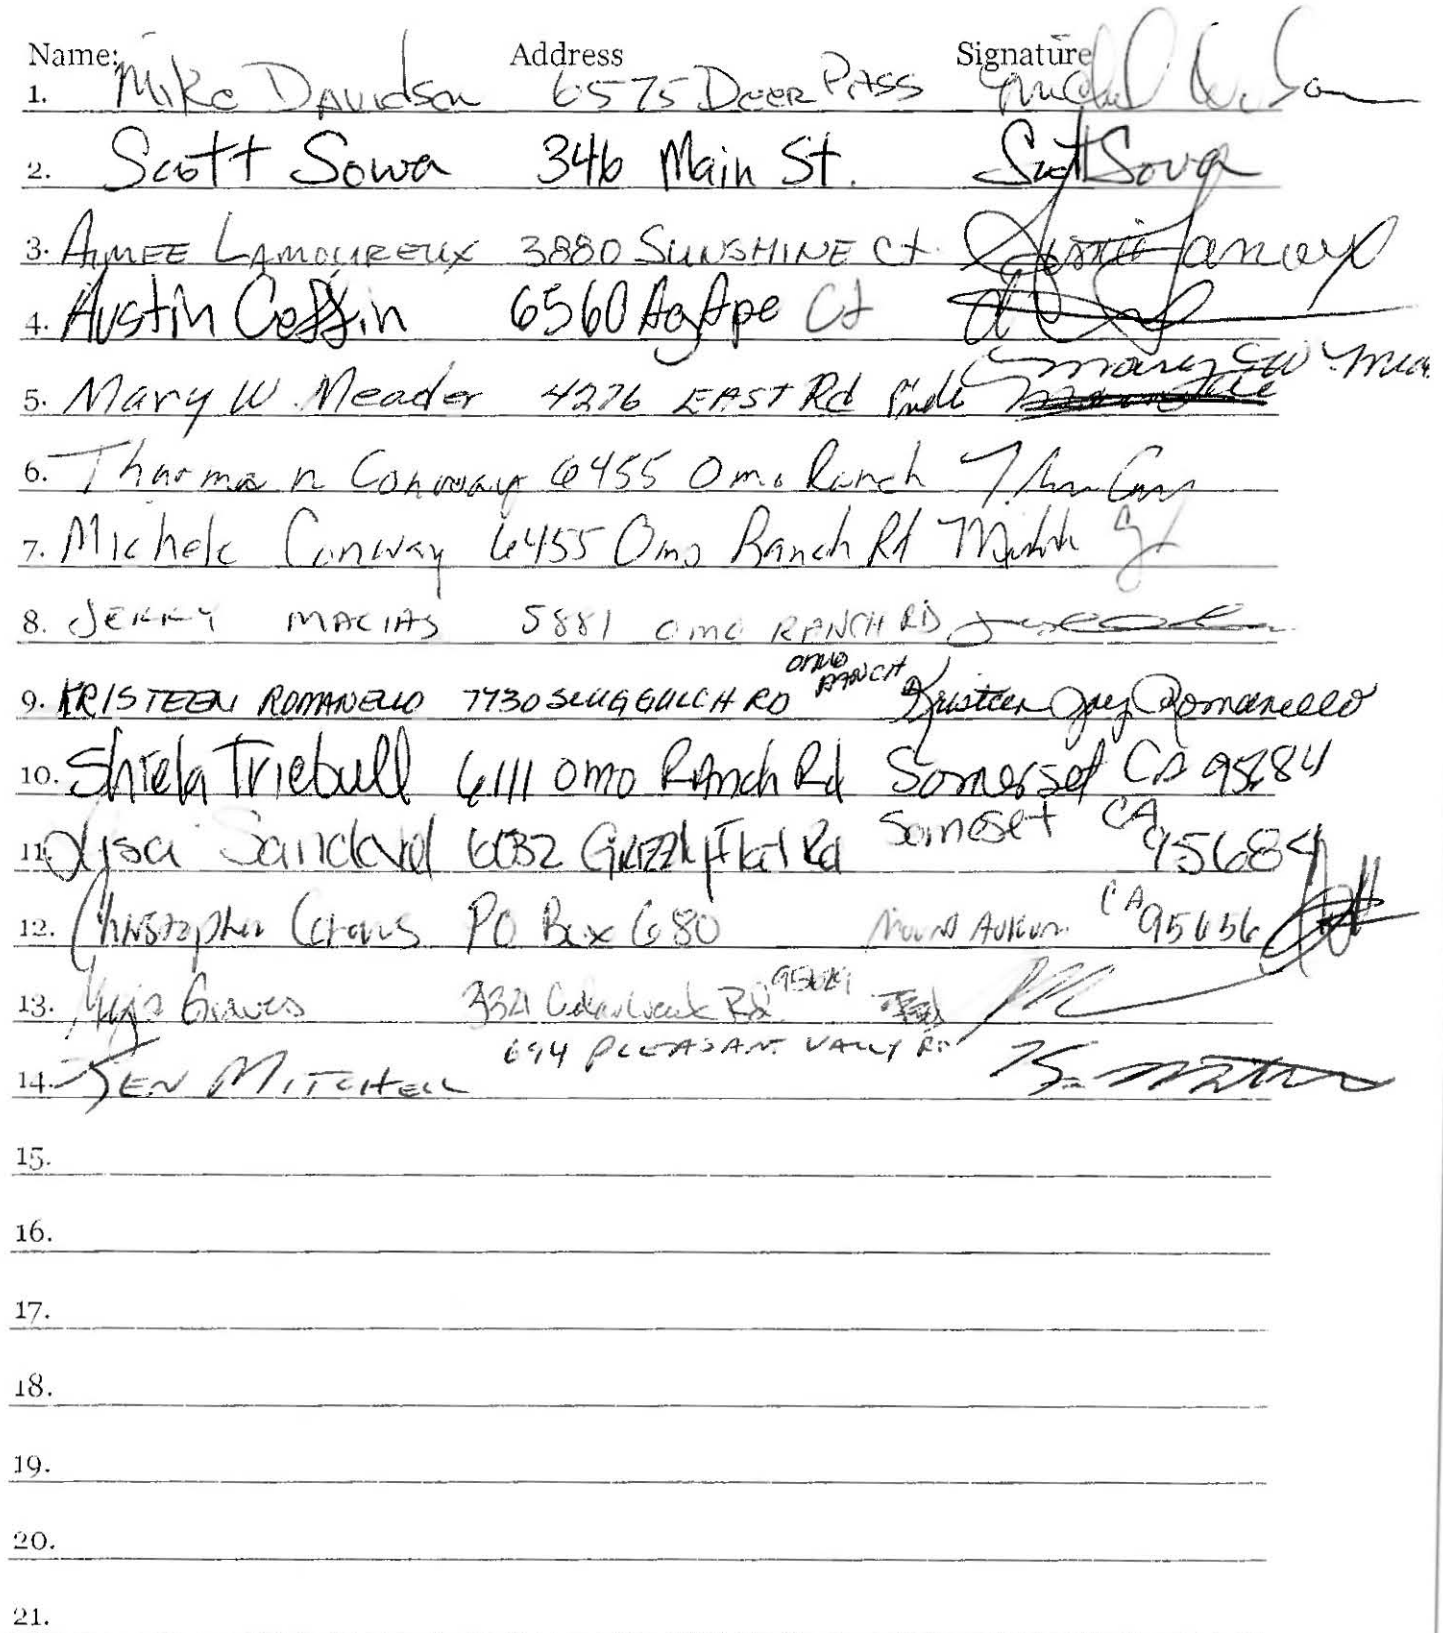 Name: Address Signature
1. Mike Davidson 6575 Deer Pass
2. Scott Sowa 346 Main St. Scott Sowa
3. Aimee Lamoureux 3880 Sunshine Ct.
4. Austin Coffin 6560 AgApe Ct
5. Mary W. Meader 4276 East Rd Mary W
6. Tharman Conway 6455 Omo Ranch
7. Michele Conway 6455 Omo Ranch Rd
8. Jerry Macias 5881 Omo Ranch RD
OMO RANCH
9. KRISTEEN ROMANELLO 7730 SLUG GULCH RD Kristeen Joey Romanello
10. Shiela Triebull 6111 Omo Ranch Rd Somerset CA 95684
11. Lysa Sandoval 6032 Grizzly Flat Rd Somerset CA 95684
12. Christopher PO Box 680 Mound Aukum CA 95656
13. Graves 3321 Rd
694 PLEASANT VALLY RD
14. KEN MITCHELL
15.
16.
17.
18.
19.
20.
21.